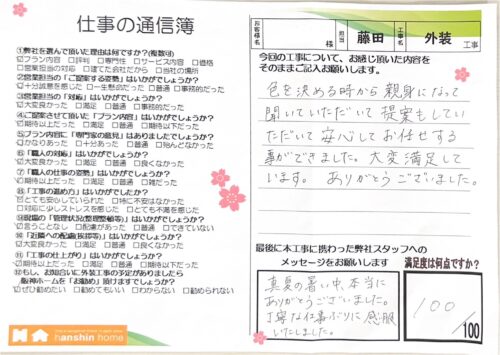 仕事の通信簿
①弊社を選んで頂いた理由は何ですか?(複数可)
☑プラン内容 □評判 □専門性 □サービス内容 □価格
□営業担当の対応 □建てた会社だから □当社の場所
②営業担当の「ご提案する姿勢」はいかがでしょうか?
☑十分誠意を感じた □一生懸命だった □普通 □事務的だった
③営業担当の「対応」はいかがでしょうか?
☑大変良かった □満足 □普通 □事務的だった
④ご提案させて頂いた「プラン内容」はいかがでしょうか?
☑期待以上だった □満足 □普通 □期待以下だった
⑤プラン内容に「専門家の意見」はありましたでしょうか?
☑かなりあった □十分あった □普通 □殆んどなかった
⑥「職人の対応」はいかがでしょうか?
☑大変良かった □満足 □普通 □良くなかった
⑦「職人の仕事の姿勢」はいかがでしょうか?
☑期待以上だった □満足 □普通 □雑だった
⑧「工事の進め方」はいかがでしたか?
☑とても安心していられた □特に不安はなかった
□対応に少しストレスを感じた □とても不満を感じた
⑨現場の「管理状況(整理整頓等)」はいかがでしょうか?
☑言うことなし □配慮があった □普通 □できていない
⑩「近隣への配慮(挨拶等)」はいかがでしょうか?
☑大変良かった □満足 □普通 □良くなかった
⑪「工事の仕上がり」はいかがでしょうか?
☑期待以上だった □満足 □普通 □期待以下だった
⑫もし、お知合いに外装工事の予定がありましたら
阪神ホームを「お勧め」頂けますでしょうか?
☑ぜひ勧めたい □勧めてもいい □わからない □勧められない
hanshin home
お客様名
様
担当
藤田
工事名
外装
工事
今回の工事について、お感じ頂いた内容を
そのままご記入お願いします。
色を決める時から親身になって
聞いていただいて提案もしてい
ただいて安心してお任せする
事ができました。大変満足して
います。ありがとうございました。
最後に本工事に携わった弊社スタッフへの
メッセージをお願いします
真夏の暑い中、本当に
ありがとうございました。
丁寧な仕事ぶりに感服
いたしました。
満足度は何点ですか?
100
/100